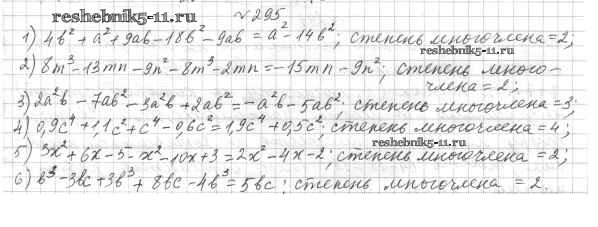 reshebnik5-11.ru
№295
1) 4b² + a² + 9ab - 18b² - 9ab = a² - 14b²; степень многочлена = 2;
reshebnik5-11.ru
2) 8m³ - 13mn - 9n² - 8m³ - 2mn = -15mn - 9n²; степень много-
члена = 2;
3) 2a²b - 7ab² - 3a²b + 2ab² = -a²b - 5ab²; степень многочлена = 3;
4) 0,9c⁴ + 1,1c² + c⁴ - 0,6c² = 1,9c⁴ + 0,5c²; степень многочлена = 4;
reshebnik5-11.ru
5) 3x² + 6x - 5 - x² - 10x + 3 = 2x² - 4x - 2; степень многочлена = 2;
6) b³ - 3bc + 3b³ + 8bc - 4b³ = 5bc; степень многочлена = 2.